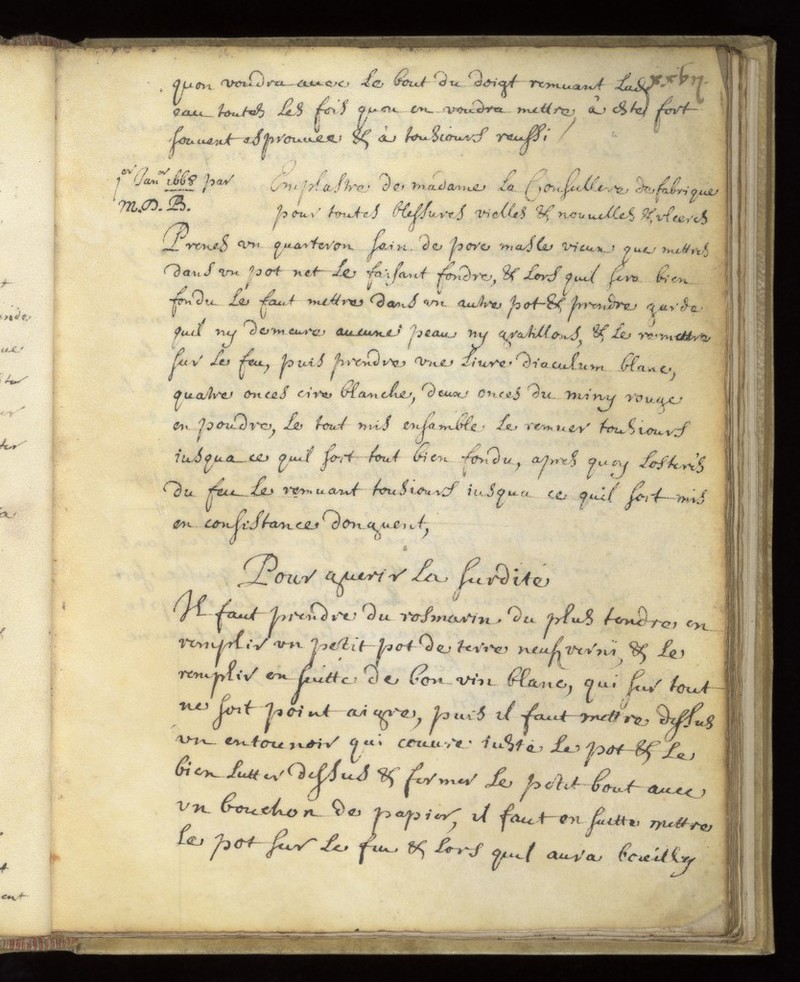 xxbij.
quon voudra auec le bout du doigt remuant lad
eau toutes les fois quon en voudra mettre, à esté fort
souuent esprouuee & à tousiours reussi
1er Janer 1668 par
M.D.B.
Emplastre de madame la Consullere de fabrique
pour toutes blessures vielles & nouuelles & vlceres
Prenes vn quarteron sein de porc masle vieux que mettres
dans vn pot net le faisant fondre, & lors quil sera bien
fondu le faut mettre dans vn autre pot & prendre garde
quil ny demeure aucune peau ny gratillons, & le remettre
sur le feu, puis prendre vne liure diaculum blanc,
quatre onces cire blanche, deux onces du miny rouge
en poudre, le tout mis ensamble le remuer tousiours
iusqua ce quil soit tout bien fondu, apres quoy losterés
du feu le remuant tousiours iusqua ce quil soit mis
en consistance donguent,
Pour guerir la surdité
Il faut prendre du rosmarin du plus tendre en
remplir vn petit pot de terre neuf verni, & le
remplir en suitte de bon vin blanc, qui sur tout
ne soit point aigre, puis il faut mettre dessus
vn entounoir qui couure iuste le pot & le
bien lutter dessus & fermer le petit bout auec
vn bouchon de papier, il faut en suitte mettre
le pot sur le feu & lors quil aura boeilly